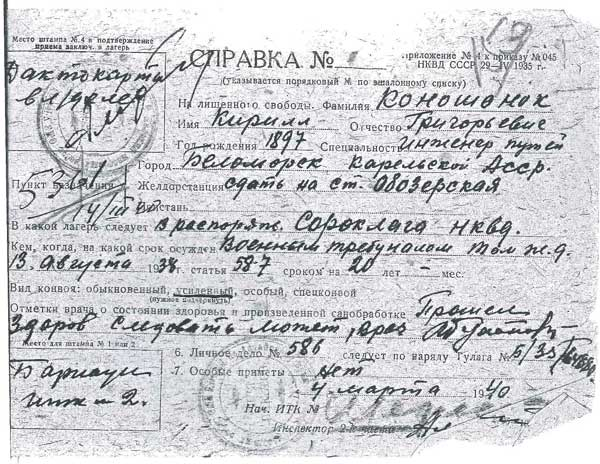 Место штампа № 4 в подтверждение
приема заключ. в лагерь
19
СПРАВКА №
приложение № 4 к приказу № 045
НКВД СССР 29—IV—1935 г.
(указывается порядковый № по эшалонному списку)
Дактокарта
На лишенного свободы. Фамилия Коношонок
Имя Кирилл Отчество Григорьевич
Год рождения 1897 Специальность инженер путей
Город Беломорск Карельской Асср.
Пункт назначения
Желдорстанция сдать на ст. Обозерская
Пристань
В какой лагерь следует В распоряж. Сороклага НКВД.
Кем, когда, на какой срок осужден Военным трибуналом Том ж.д.
13 августа 1938 г. статья 58-7 сроком на 20 лет — мес.
Вид конвоя: обыкновенный, усиленный, особый, спецконвой
(нужное подчеркнуть)
Отметки врача о состоянии здоровья и произведенной санобработке Прошел
Здоров следовать может, врач
Место для штампа № 1 или 2
6. Личное дело № 586 следует по наряду Гулага № 5/33
7. Особые приметы нет
Барнаул
итк № 2.
4 марта 1940
Нач. ИТК №
Инспектор 2-й части